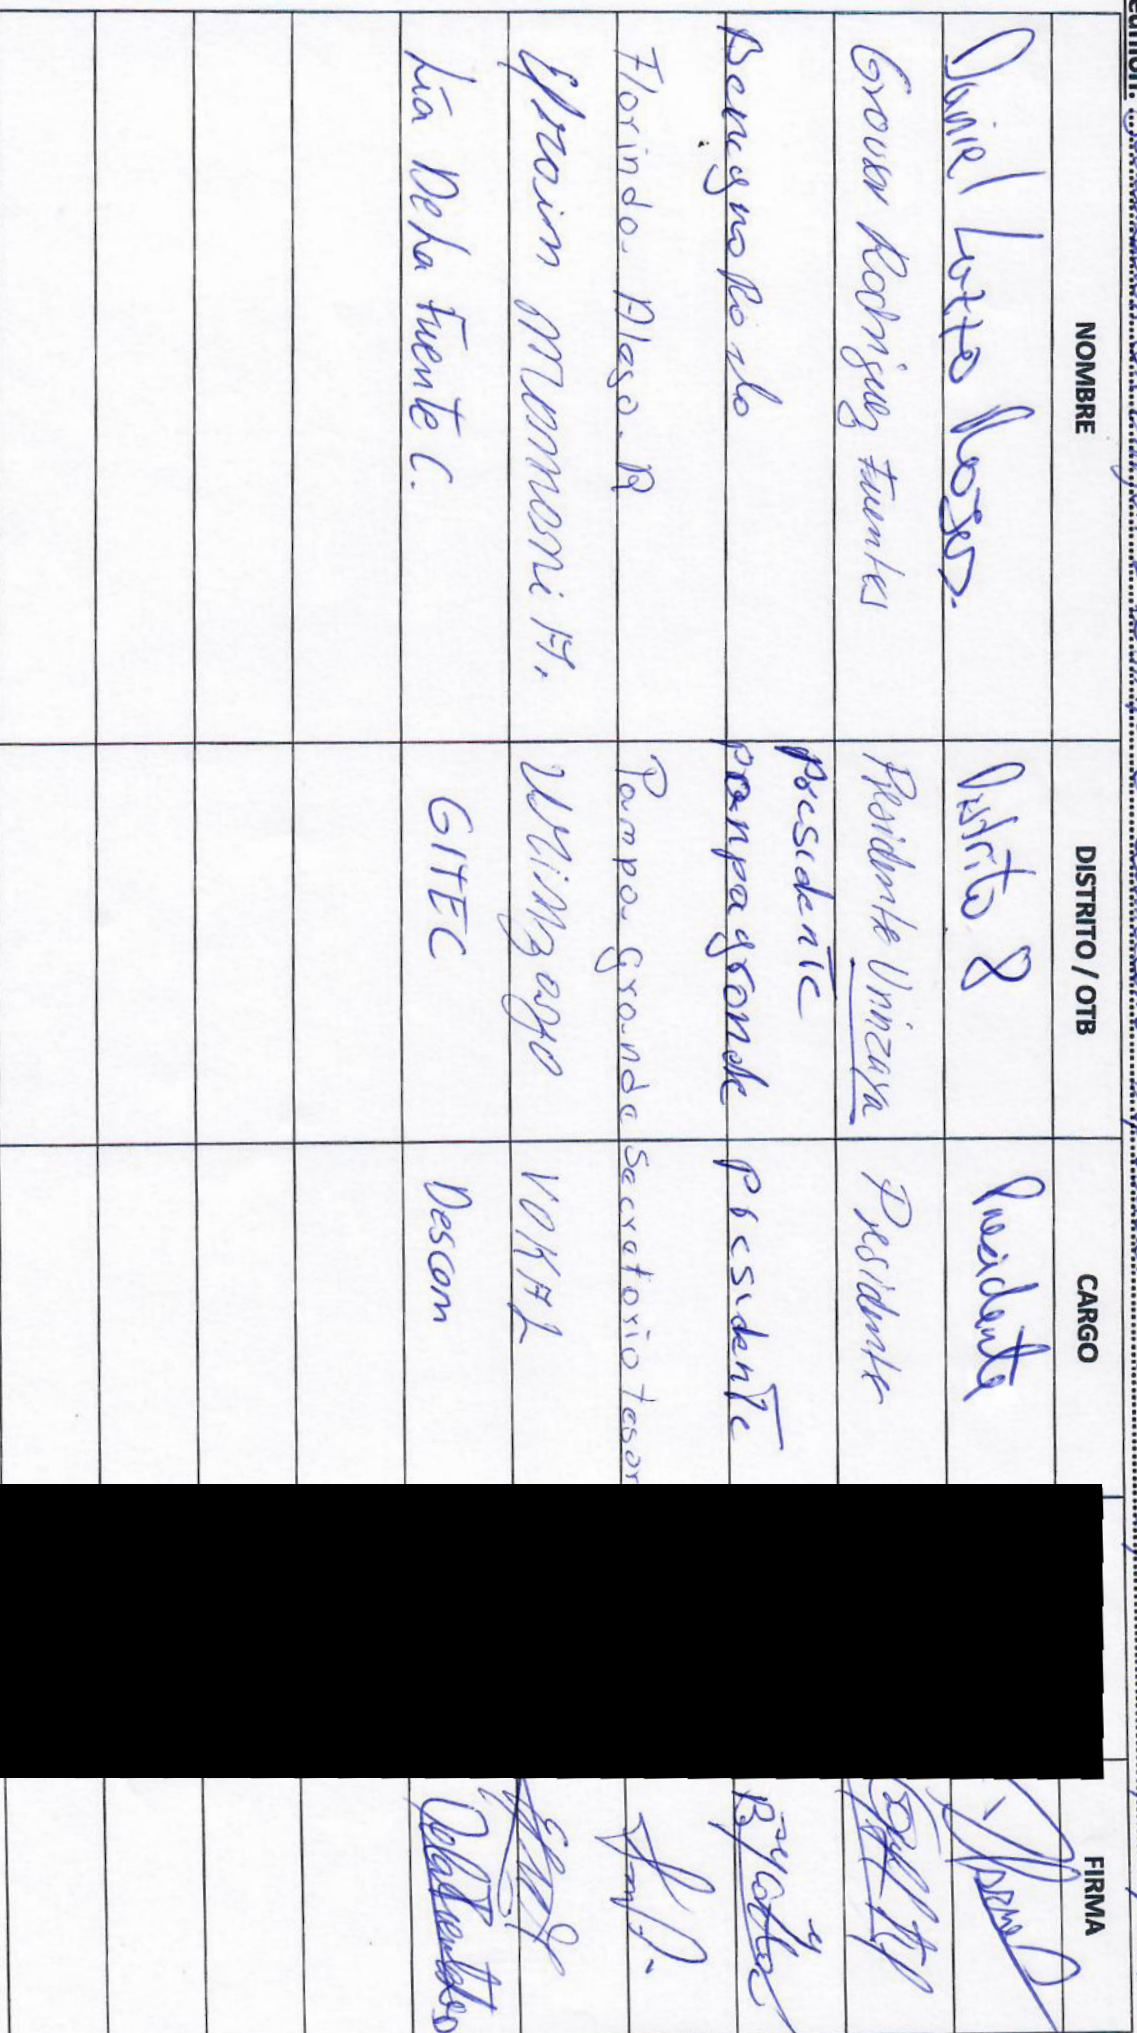 NOMBRE DISTRITO / OTB CARGO FIRMA
Daniel Lazzo Rojas. Distrito 8 Presidente
Grover Rodriguez Fuentes Presidente Urinzaya Presidente
Presidente
Benigno pampagrande Presidente
Florindo. Alago. R Pampa grande Secratario tesor
Efrain Mamani M. Urinzaya VOKAL
Lía De La Fuente C. GITEC Descom